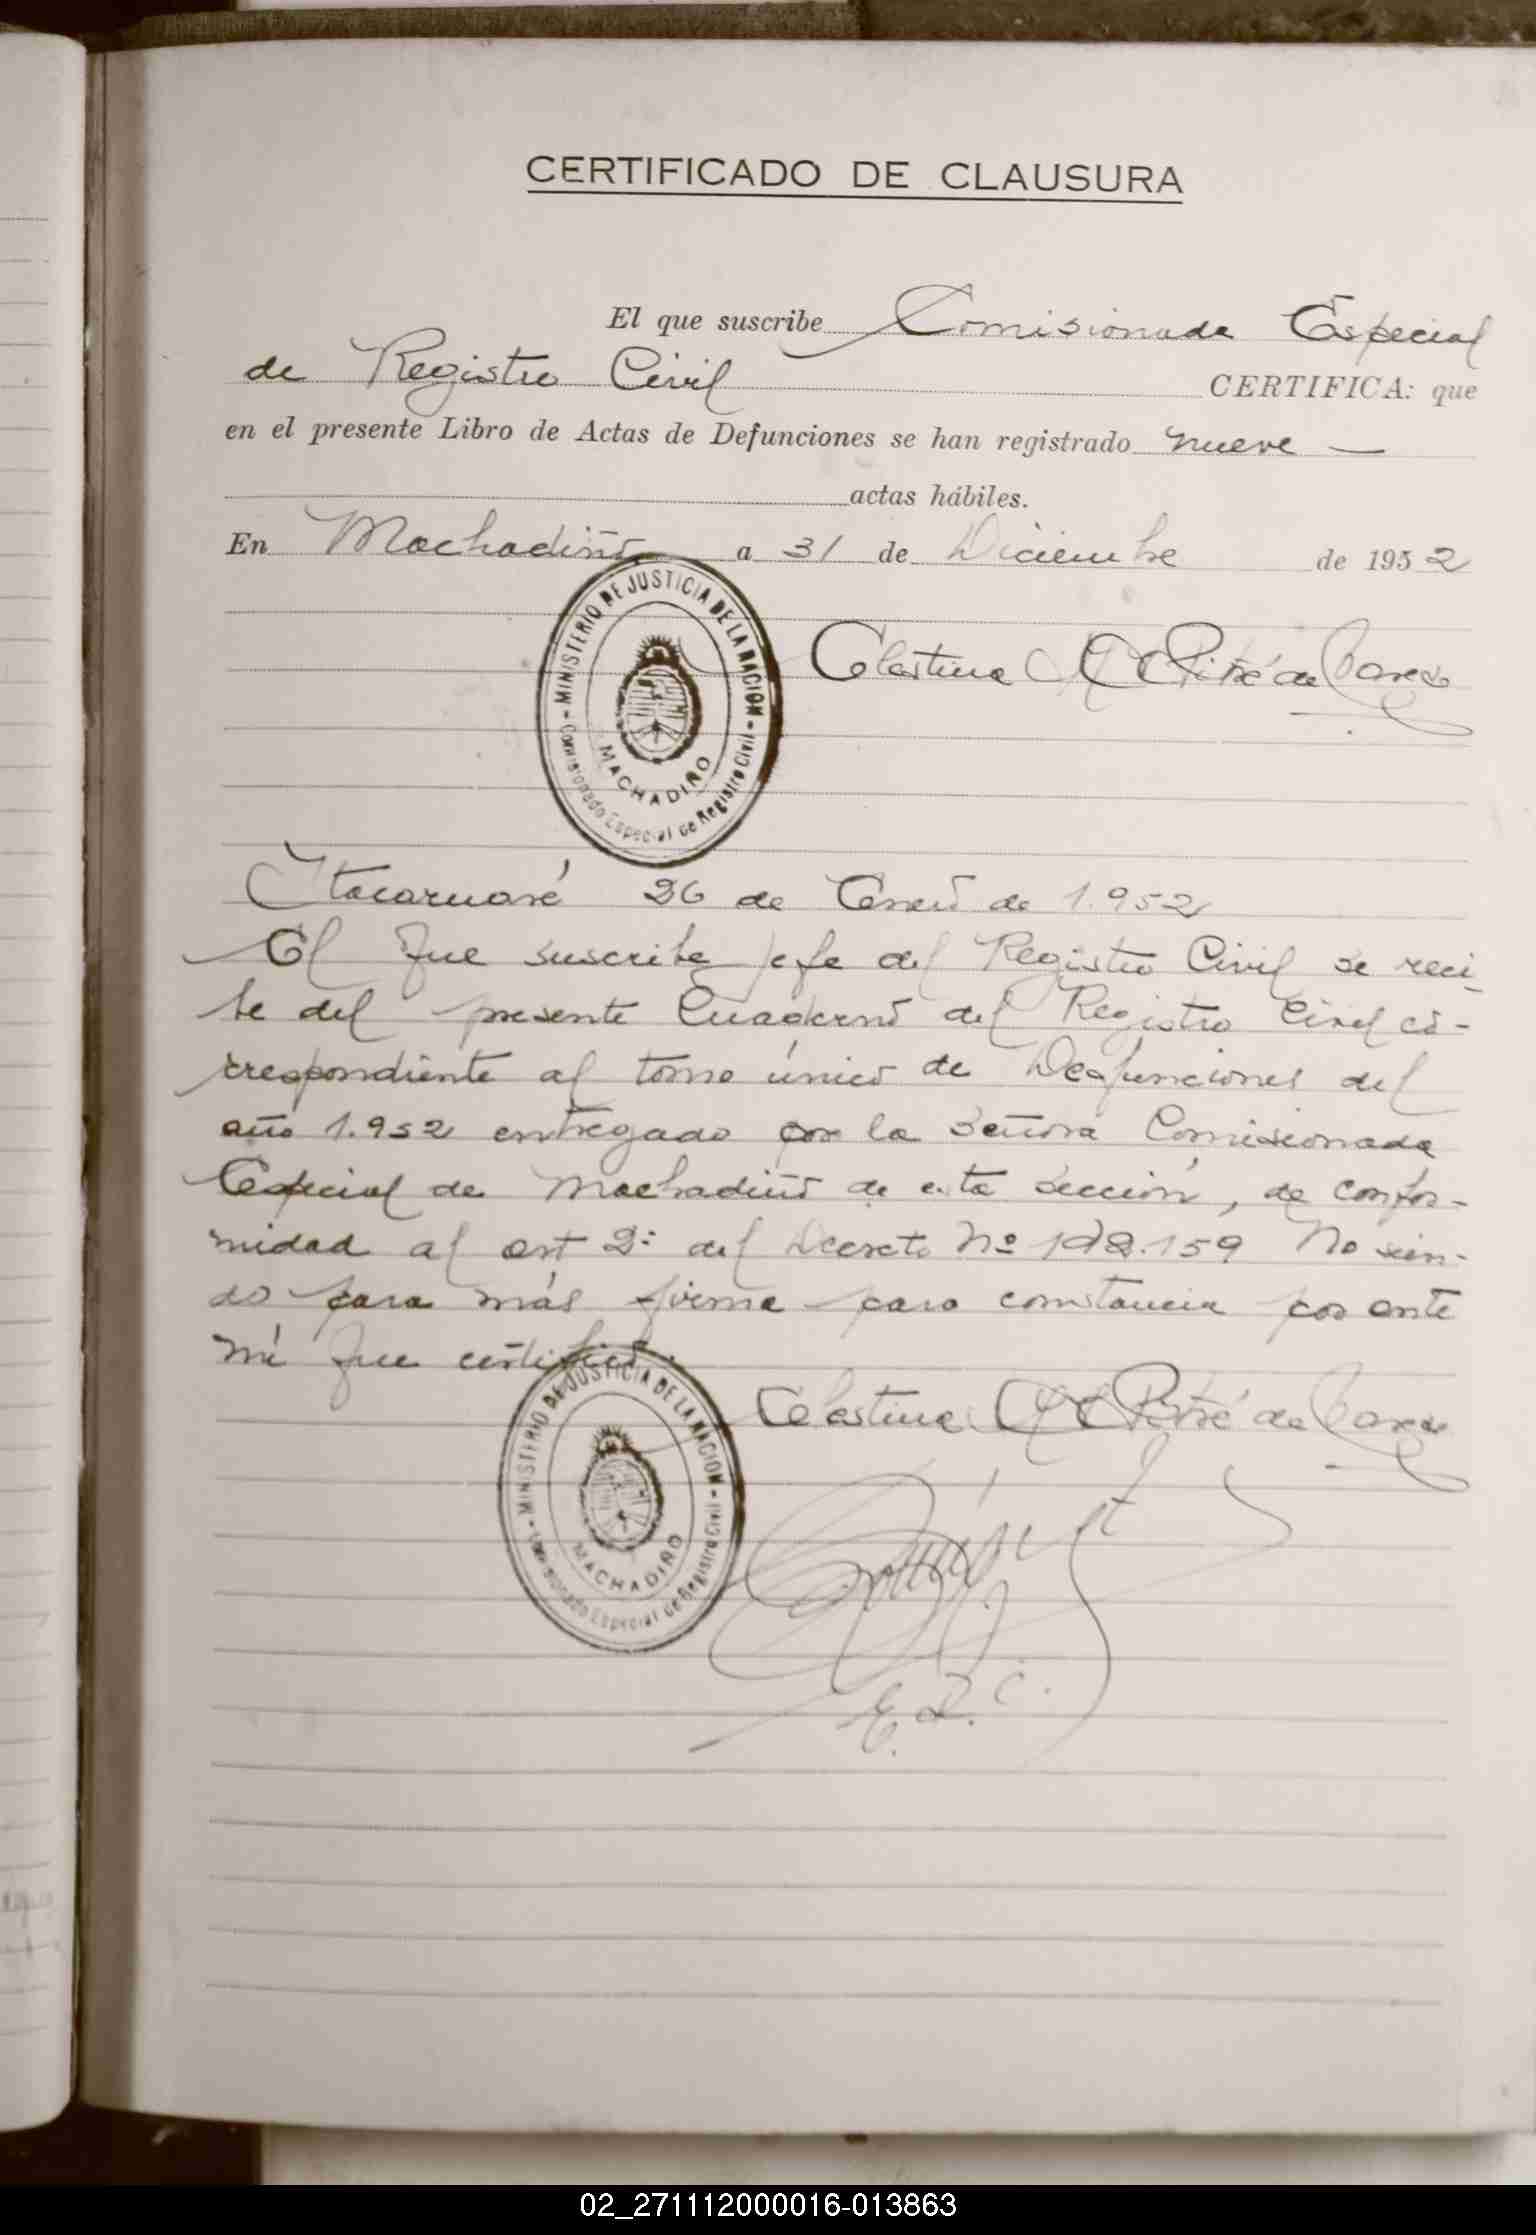 CERTIFICADO DE CLAUSURA
El que suscribe Comisionada Especial
de Registro Civil CERTIFICA: que
en el presente Libro de Actas de Defunciones se han registrado nueve —
actas hábiles.
En Machadiño a 31 de Diciembre de 1952
MINISTERIO DE JUSTICIA DE LA NACION
MACHADIÑO
Comisionado Especial de Registro Civil
Celestina Pitré de
Itacaruaré 26 de Enero de 1.952
El que suscribe jefe del Registro Civil se reci-
be del presente Cuaderno del Registro Civil co-
rrespondiente al tomo único de Deafunciones del
año 1.952 entregado por la Señora Comisionada
Especial de Machadiño de esta sección, de confor-
midad al art 2º del Decreto Nº .159 No sien-
do para más firma para constancia por ante
mí que certifico.
MINISTERIO DE JUSTICIA DE LA NACION
MACHADIÑO
Comisionado Especial de Registro Civil
Celestina Pitré de
E. R. C.
02_271112000016-013863